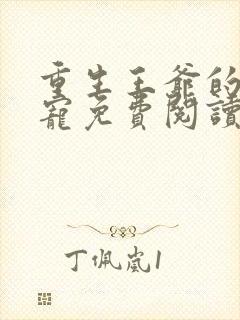 重生王爺的
寵免費閱讀
丁佩嵐1